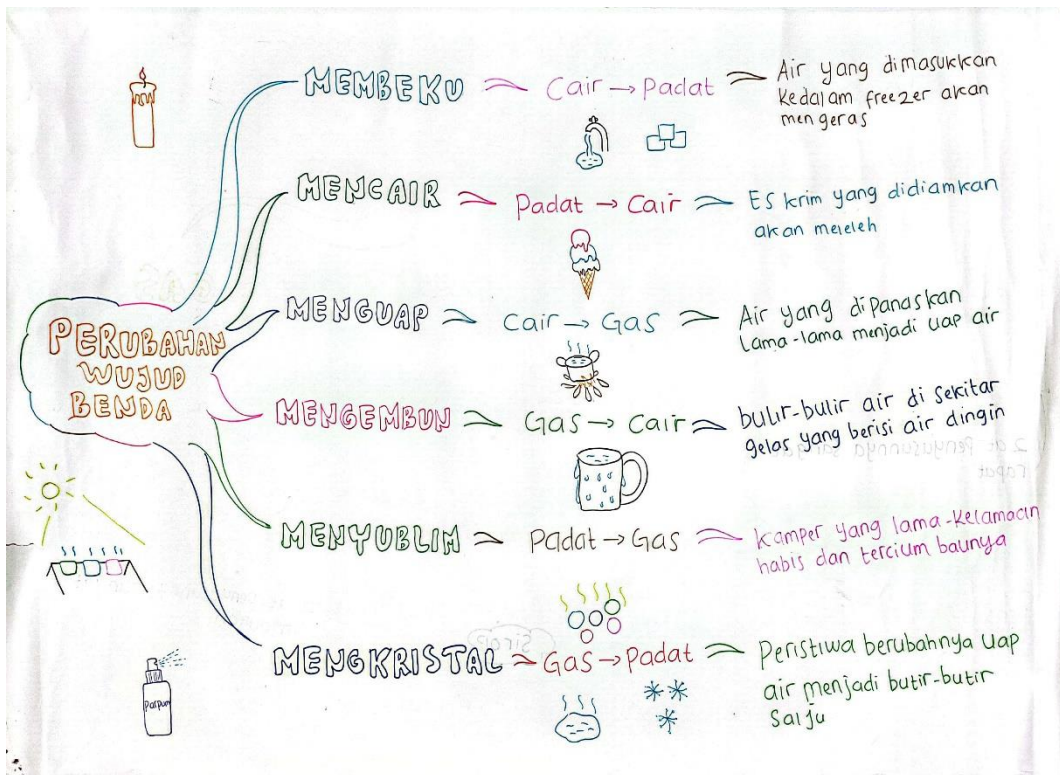 PERUBAHAN
WUJUD
BENDA
MEMBEKU
Cair → Padat
Air yang dimasukkan
kedalam freezer akan
mengeras
MENCAIR
Padat → Cair
ES krim yang didiamkan
akan meleleh
MENGUAP
Cair → Gas
Air yang dipanaskan
Lama-lama menjadi uap air
MENGEMBUN
Gas → Cair
bulir-bulir air di sekitar
gelas yang berisi air dingin
MENYUBLIM
Padat → Gas
Kamper yang lama-kelamaan
habis dan tercium baunya
MENGKRISTAL
Gas → Padat
Peristiwa berubahnya uap
air menjadi butir-butir
Salju